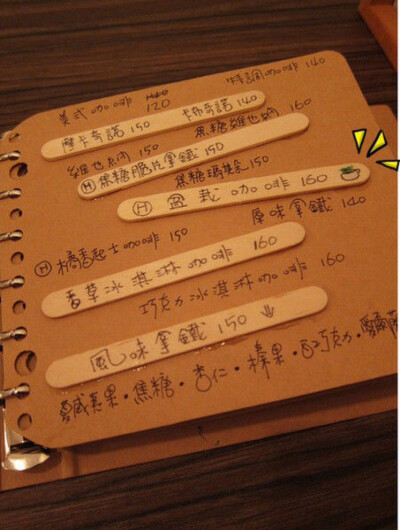 美式咖啡 120 特調咖啡 140
摩卡奇諾 150 卡布奇諾 140
維也納 150 焦糖維也納 160
Ⓗ 焦糖脆片拿鐵 150
焦糖瑪其朵 150
Ⓗ 盆栽咖啡 160
原味拿鐵 140
Ⓗ 橘香起士咖啡 150
香草冰淇淋咖啡 160
巧克力冰淇淋咖啡 160
風味拿鐵 150 ↓
鹹焦果・焦糖・杏仁・榛果・白巧克力・